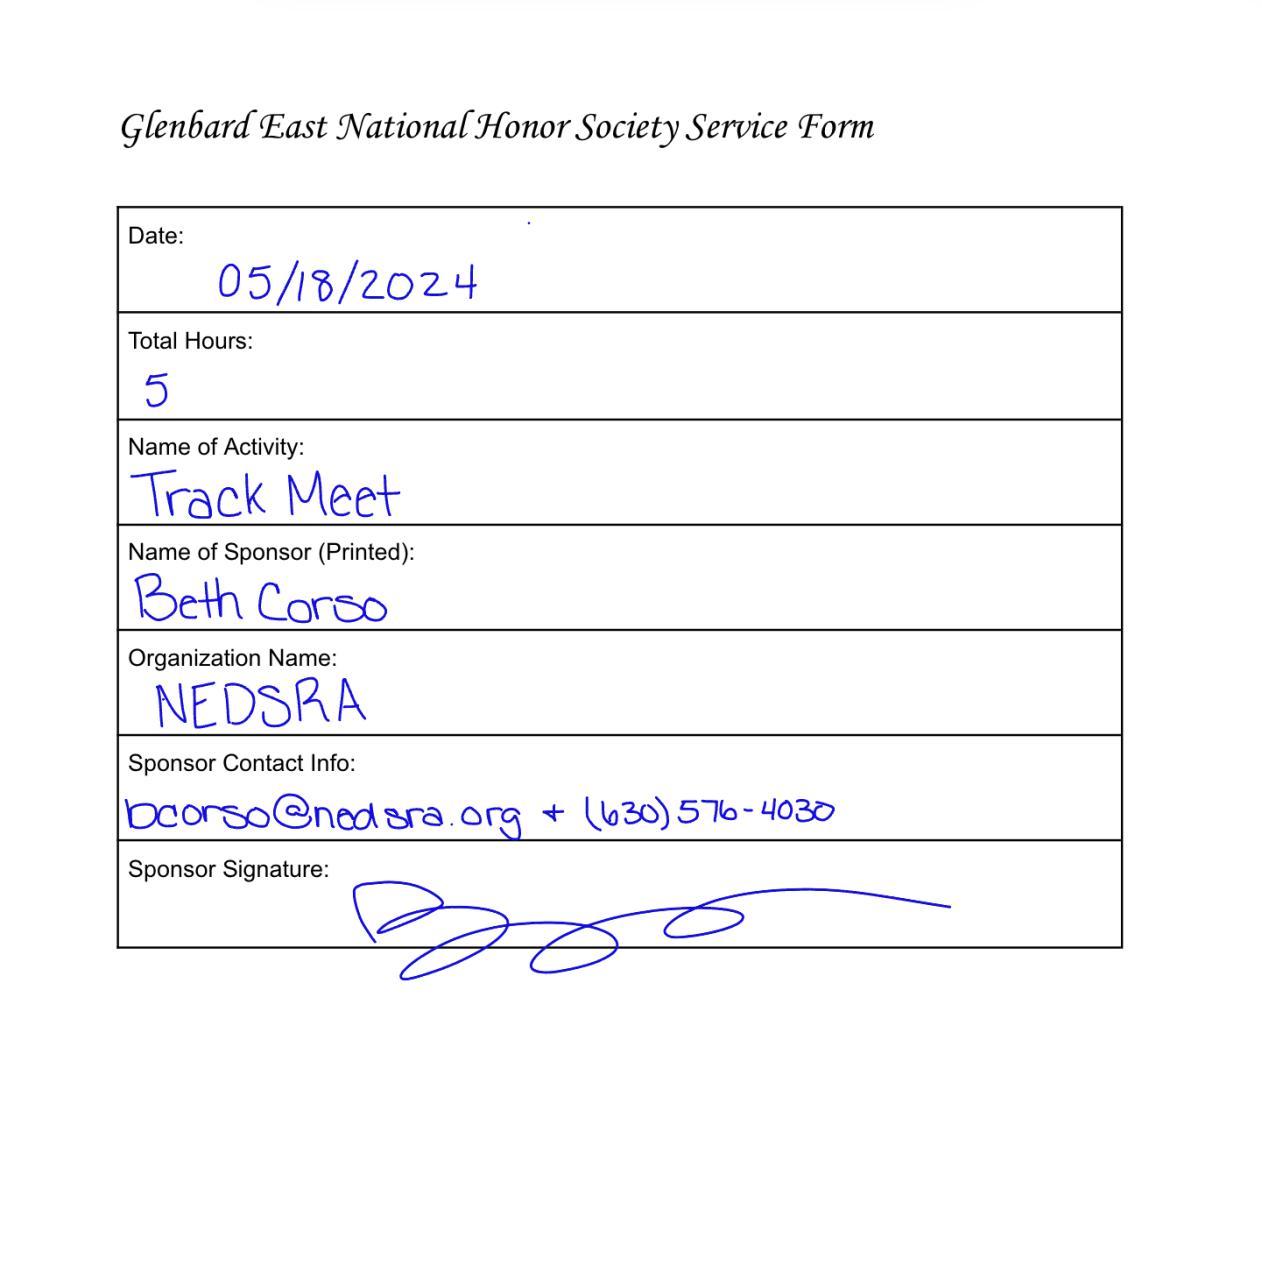 Glenbard East National Honor Society Service Form
Date:
05/18/2024
Total Hours:
5
Name of Activity:
Track Meet
Name of Sponsor (Printed):
Beth Corso
Organization Name:
NEDSRA
Sponsor Contact Info:
bcorso@nedsra.org + (630)576-4030
Sponsor Signature: